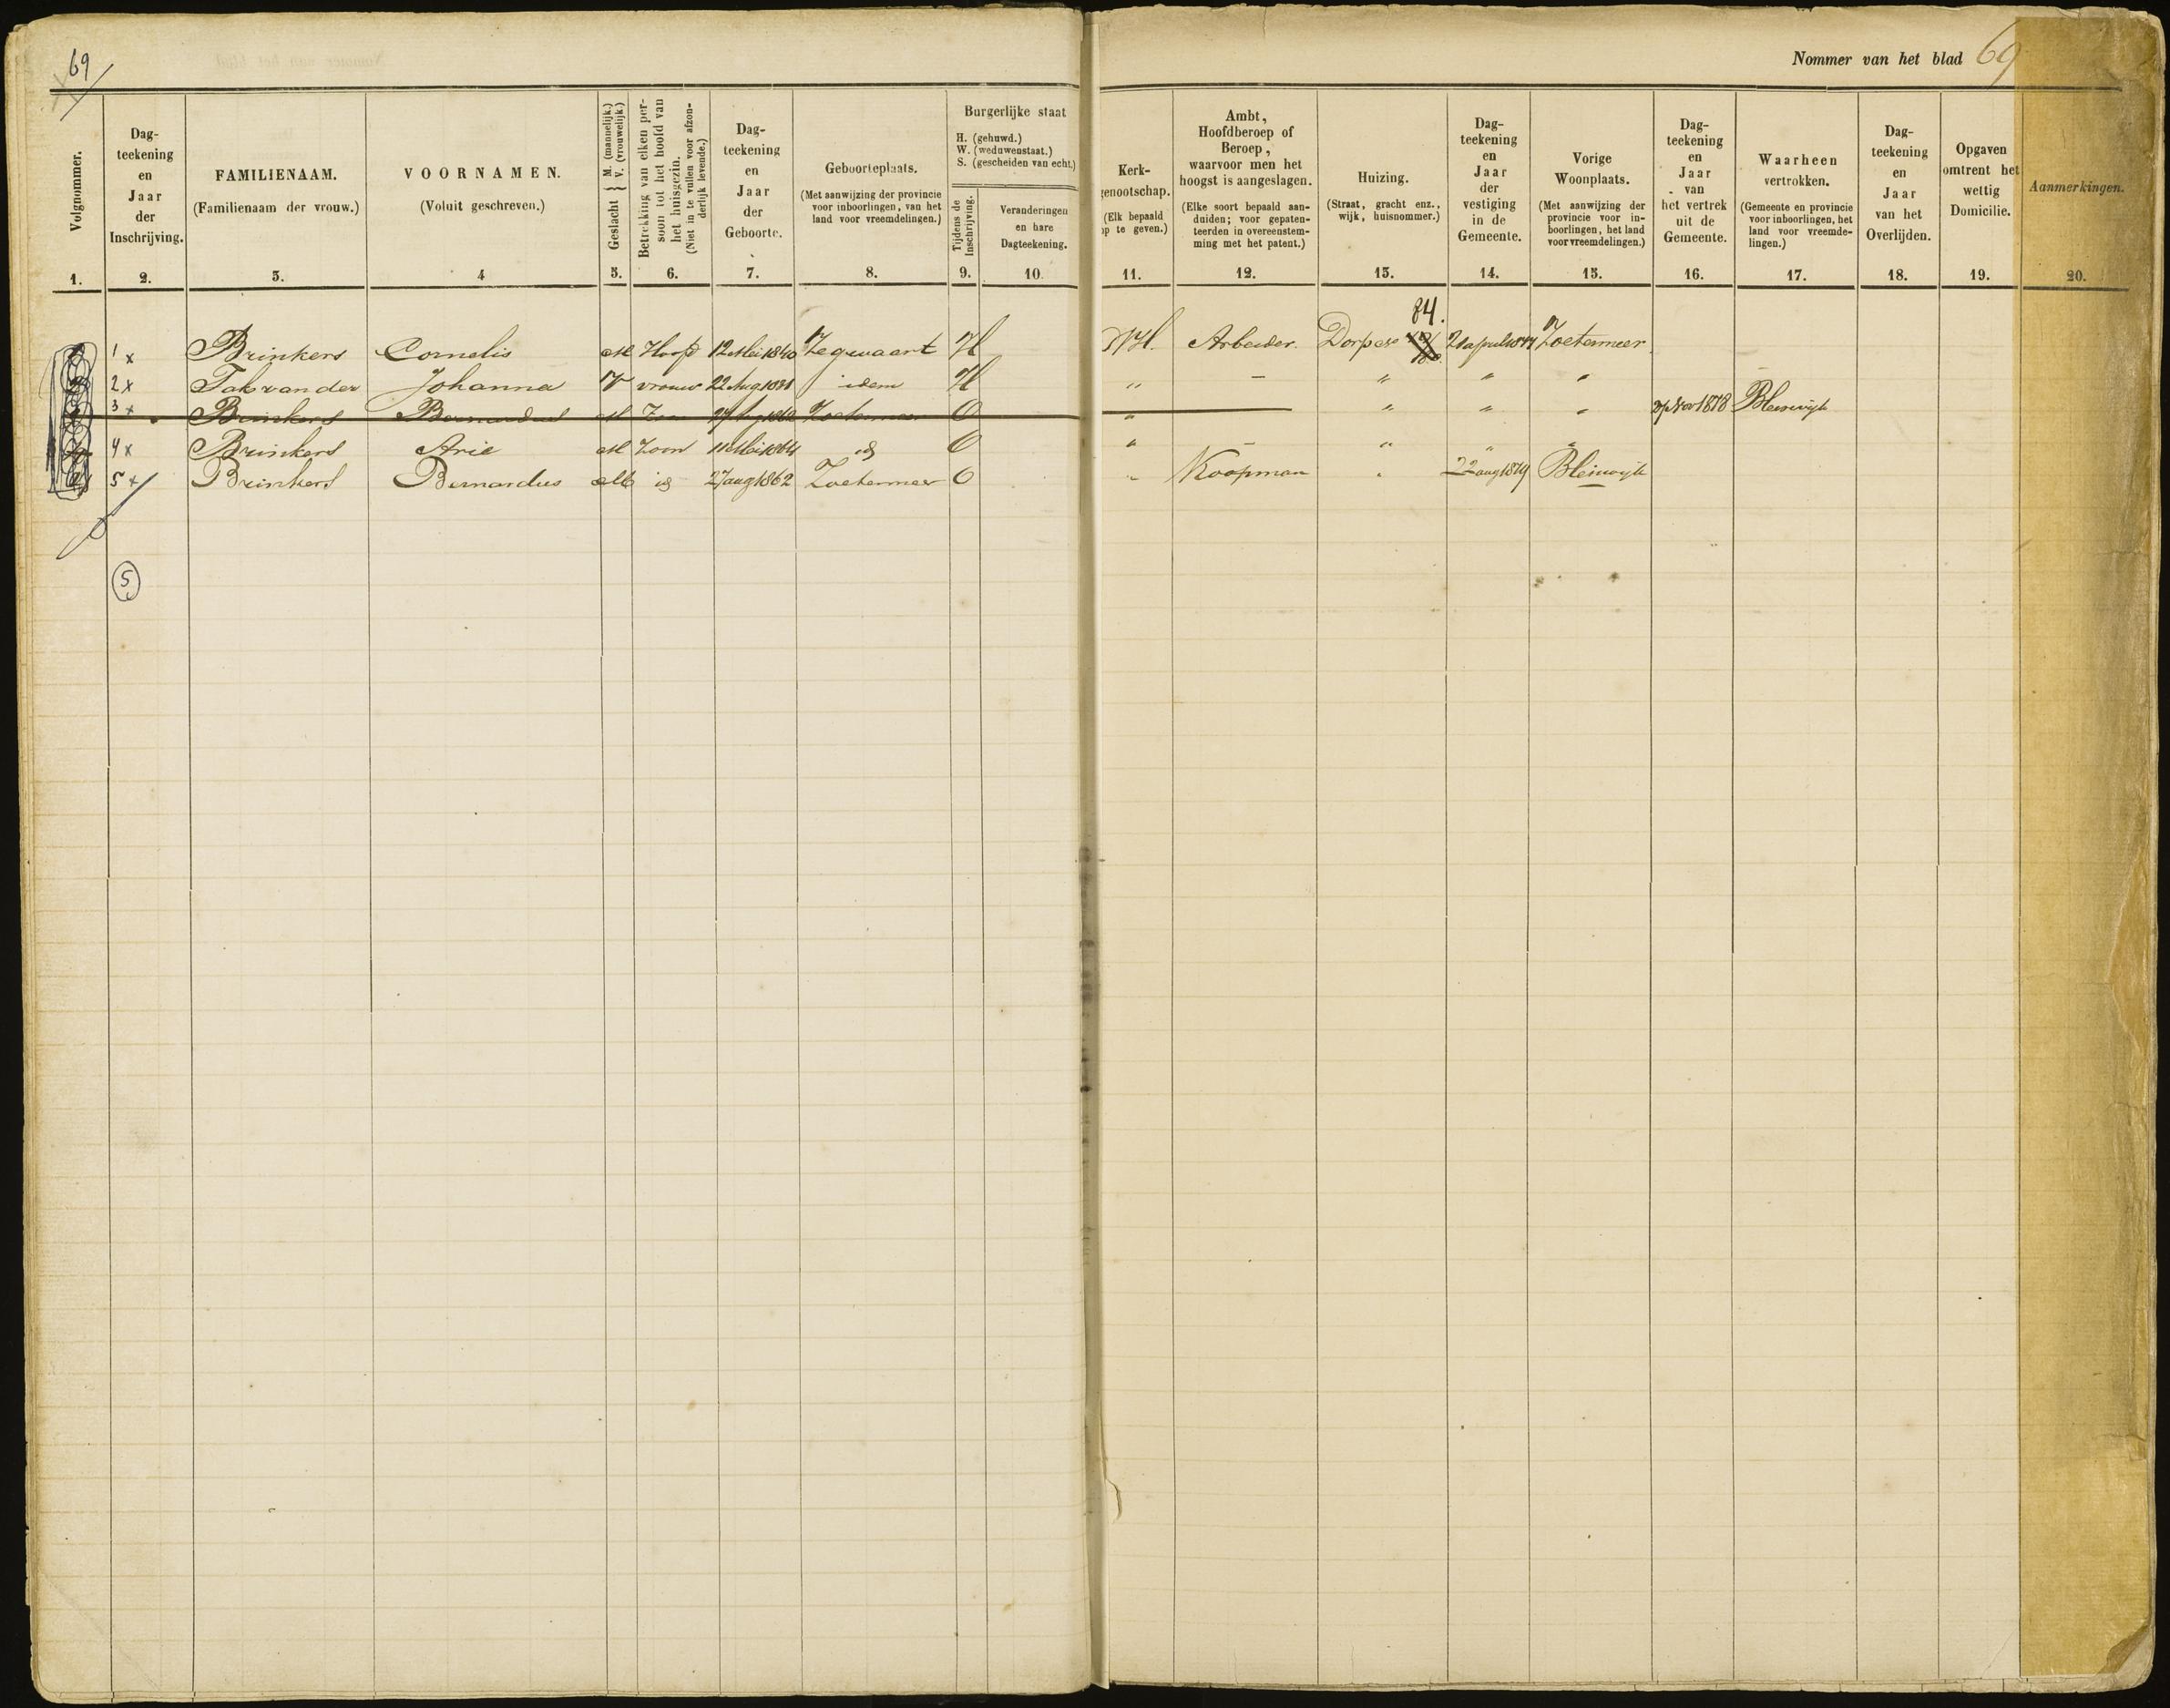 69
Nommer van het blad 69
Volgnommer.
1.
Dag-
teekening
en
Jaar
der
Inschrijving.
2.
FAMILIENAAM.
(Familienaam der vrouw.)
3.
VOORNAMEN.
(Voluit geschreven.)
4
Geslacht { M. (mannelijk.)
V. (vrouwelijk.)
5.
Betrekking van elken per-
soon tot het hoofd van
het huisgezin.
(Niet in te vullen voor afzon-
derlijk levende.)
6.
Dag-
teekening
en
Jaar
der
Geboorte.
7.
Geboorteplaats.
(Met aanwijzing der provincie
voor inboorlingen, van het
land voor vreemdelingen.)
8.
Burgerlijke staat
H. (gehuwd.)
W. (weduwenstaat.)
S. (gescheiden van echt.)
Tijdens de
Inschrijving.
9.
Veranderingen
en hare
Dagteekening.
10.
Kerk-
genootschap.
(Elk bepaald
op te geven.)
11.
Ambt,
Hoofdberoep of
Beroep,
waarvoor men het
hoogst is aangeslagen.
(Elke soort bepaald aan-
duiden; voor gepaten-
teerden in overeenstem-
ming met het patent.)
12.
Huizing.
(Straat, gracht enz.,
wijk, huisnommer.)
13.
Dag-
teekening
en
Jaar
der
vestiging
in de
Gemeente.
14.
Vorige
Woonplaats.
(Met aanwijzing der
provincie voor in-
boorlingen, het land
voor vreemdelingen.)
15.
Dag-
teekening
en
Jaar
van
het vertrek
uit de
Gemeente.
16.
Waarheen
vertrokken.
(Gemeente en provincie
voor inboorlingen, het
land voor vreemde-
lingen.)
17.
Dag-
teekening
en
Jaar
van het
Overlijden.
18.
Opgaven
omtrent het
wettig
Domicilie.
19.
Aanmerkingen.
20.
84.
1 x Brinkers Cornelis M Hoofd 12 Mei 1840 Zegwaart H NH. Arbeider. Zoetermeer
2 x Tak van der Johanna V vrouw 22 Aug idem H „ – „ „ „
3 x Brinkers Bernardus M Zoon Zoetermeer O „ „ „ „ Nov 1878 Bleiswijk
4 x Brinkers Arie M Zoon 11 Mei 1864 id O „ – „ „ „
5 x Brinkers Bernardus M id 27 aug 1862 Zoetermeer O „ Koopman „ 22 aug 1879 Bleiswijk
5